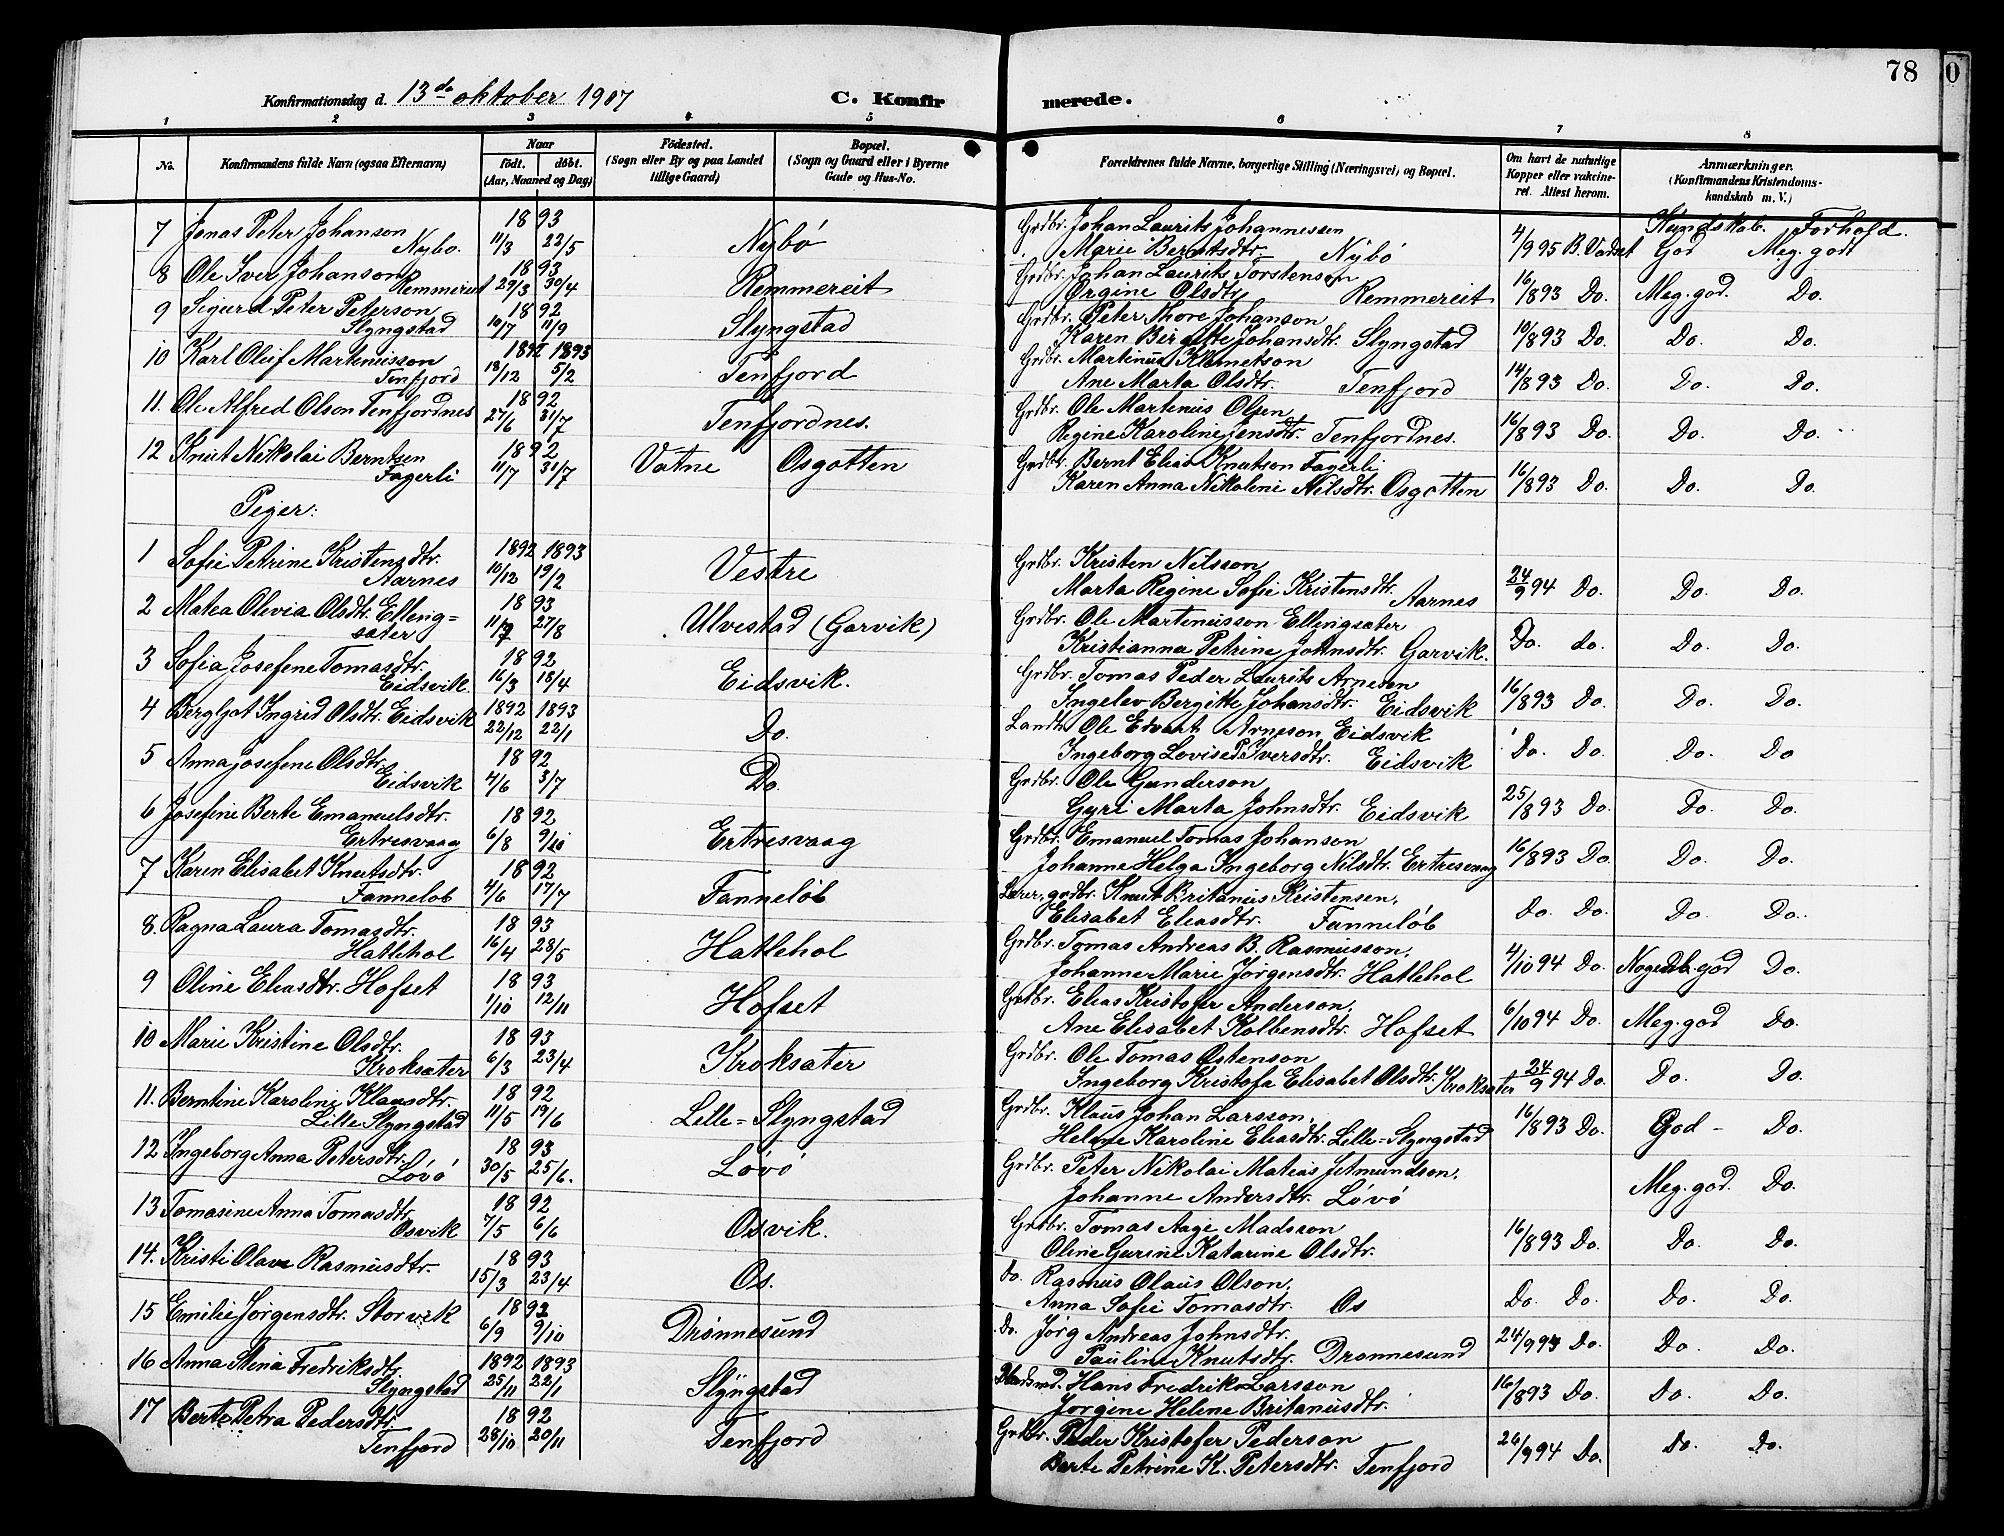 78
Konfirmationsdag d. 13de oktober 1907
C. Konfirmerede.
1 2 3 4 5 6 7 8
No. Konfirmandens fulde Navn (ogsaa Efternavn) Naar födt. döbt. (Aar, Maaned og Dag) Födested. (Sogn eller By og paa Landet tillige Gaard) Bopæl. (Sogn og Gaard eller i Byerne Gade og Hus-No. Forældrenes fulde Navne, borgerlige Stilling (Næringsvei) og Bopæl. Om havt de naturlige Kopper eller vakcineret. Attest herom. Anmærkninger. (Konfirmandens Kristendomskundskab m. V.)
Kundskab. Forhold.
7 Jonas Peter Johanson 1893 Grdbr. Johan Laurits Johannessen
Nybø. 11/3 22/5 Nybø Marie Berntsdtr. Nybø 4/9 95 B. Vadset God Meg. godt
8 Ole Iver Johanson 1893 Grdbr. Johan Laurits Torstenson
Remmereit 29/3 30/4 Remmereit Ørgine Olsdtr. Remmereit 16/8 93 Do. Meg. god. Do.
9 Sigurd Peter Peterson 1892 Grdbr. Peter Thore Johanson
Slyngstad 10/7 11/9 Slyngstad Karen Birgitte Johansdtr. Slyngstad 10/8 93 Do. Do. Do.
10 Karl Oluf Martinusson 1892 1893 Grdbr. Martinus Klemetson
Tenfjord 18/12 5/2 Tenfjord Ane Marta Olsdtr. Tenfjord 14/8 93 Do. Do. Do.
11. Ole Alfred Olson Tenfjordnes 1892 Grdbr. Ole Martinus Olsen
27/6 31/7 Tenfjordnes. Regine Karoline Jensdtr. Tenfjordnes. 16/8 93 Do. Do. Do.
12 Knut Nikolai Berntsen 1892 Grdbr. Bernt Elias Knutson Fagerli
Fagerli 11/7 31/7 Vatne Osgotten Karen Anna Nikoline Nilsdtr. Osgotten 16/8 93 Do. Do. Do.
Piger:
1 Sofie Petrine Kristensdtr. 1892 1893 Grdbr. Kristen Nilsson
Aarnes 10/12 19/2 Vestre Marta Regine Sofie Kristensdtr. Aarnes 24/9 94 Do. Do. Do.
2 Matea Olivia Olsdtr. Elleng= 1893 Grdbr. Ole Martinusson Ellingsæter
sæter 27/8 Ulvestad (Garvik) Kristianna Petrine Johnsdtr. Garvik. Do. do. Do. Do.
3 Sofia Josefene Tomasdtr. 1892 Grdbr. Tomas Peder Laurits Arneson
Eidsvik. 16/3 18/4 Eidsvik. Ingelev Bergitte Johansdtr. Eidsvik 16/8 93 Do. Do. Do.
4 Bergljot Ingrid Olsdtr. Eidsvik 1892 1893 Landh. Ole Edvart Arneson Eidsvik
22/12 22/1 Do. Ingeborg Lovise P. Iversdtr. Eidsvik Do. Do. Do. Do
5 Anna Josefene Olsdtr. 1892 Grdbr. Ole Gunderson
Eidsvik 4/6 3/7 Do. Gyri Marta Johnsdtr. Eidsvik 25/8 93 Do. Do. Do.
6 Josefine Berte Emanuelsdtr. 1892 Grdbr. Emanuel Tomas Johanson
Ertresvaag 6/8 9/10 Ertresvaag Johanne Helga Ingeborg Nilsdtr. Ertresvaag 16/8 93 Do. Do. Do.
7 Karen Elisabet Knutsdtr. 1892 Lærer, grdbr. Knut Britanus Kristensen,
Fanneløb 4/6 17/7 Fanneløb Elisabet Eliasdtr. Fanneløb Do. Do. Do. Do.
8. Ragna Laura Tomasdtr. 1893 Grdbr. Tomas Andreas B. Rasmusson,
Hatlehol 16/4 28/5 Hatlehol Johanne Marie Jørgensdtr. Hatlehol 4/10 94 Do. god Do.
9 Oline Eliasdtr. Hofset 1893 Grdbr. Elias Kristofer Anderson,
1/10 12/11 Hofset Ane Elisabet Kolbensdtr. Hofset 6/10 94 Do. Meg. god Do.
10 Marie Kristine Olsdtr. 1893 Grdbr. Ole Tomas Ostenson
Kroksæter 6/3 23/4 Kroksæter Ingeborg Kristofa Elisabet Olsdtr. Kroksæter 24/9 94 Do. Do. Do.
11. Berntine Karoline Klausdtr. 1892 Grdbr. Klaus Johan Larsson,
Lille Slyngstad 11/5 19/6 Lille=Slyngstad Helene Karoline Eliasdtr. Lille=Slyngstad 16/8 93 Do. God - Do.
12 Ingeborg Anna Petersdtr. 1893 Grdbr. Peter Nikolai Matias Jetmundson,
Løvø 30/5 25/6. Løvø Johanne Andersdtr. Løvø Meg. god. Do.
13 Tomasine Anna Tomasdtr. 1892 Grdbr. Tomas Aage Madsson
Osvik 7/5 6/6 Osvik. Oline Gurine Katarine Olsdtr. 16/8 93 Do. Do. Do.
14. Kristi Olava Rasmusdtr. 1893 Do. Rasmus Olaus Olson,
15/3 23/4 Os. Anna Sofie Tomasdtr. Os Do. Do. Do. Do.
15 Emilie Jørgensdtr. Storvik 1892 Do. Jørg Andreas Johnsdtr.
6/9 9/10 Drønnesund Pauline Knutsdtr. Drønnesund 24/9 94 Do. Do. Do.
16 Anna Stena Fredriksdtr. 1892 1893 Hans Fredrik Larsson
Slyngstad 25/11 22/1 Slyngstad Jørgine Helene Britanusdtr. 16/8 93 Do. Do. Do.
17 Berte Petra Pedersdtr. 1892 Grdbr. Peder Kristofer Pederson
Tenfjord 28/10 20/11 Tenfjord Berte Petrine K. Petersdtr. Tenfjord 26/9 94 Do. Do. Do.